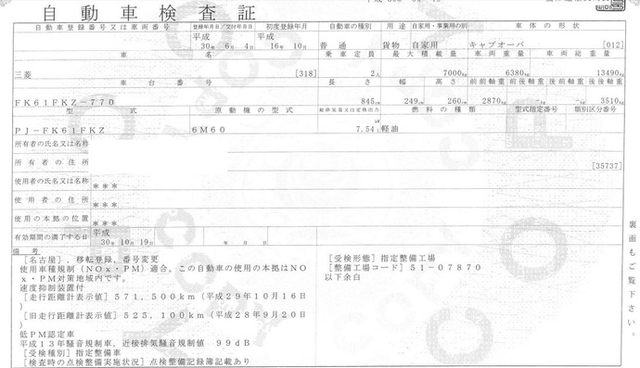 自動車検査証
自動車登録番号又は車両番号 登録年月日/交付年月日 初度登録年月 自動車の種別 用途 自家用・事業用の別 車体の形状
平成 平成
30年 6月 4日 16年 10月 普通 貨物 自家用 キャブオーバ [012]
車名 乗車定員 最大積載量 車両重量 車両総重量
三菱 [318] 2人 7000kg 6380kg 13490kg
車台番号 長さ 幅 高さ 前前軸重 前後軸重 後前軸重 後後軸重
FK61FKZ-770 845cm 249cm 260cm 2870kg -kg -kg 3510kg
型式 原動機の型式 総排気量又は定格出力 燃料の種類 型式指定番号 類別区分番号
PJ-FK61FKZ 6M60 7.54L 軽油
所有者の氏名又は名称
所有者の住所 [35737]
使用者の氏名又は名称 ***
使用者の住所 ***
使用の本拠の位置 ***
有効期間の満了する日 平成
30年 10月 19日 年 月 日
備考
[名古屋],移転登録,番号変更
使用車種規制(NOx・PM)適合,この自動車の使用の本拠はNO
x・PM対策地域内です。
速度抑制装置付
[走行距離計表示値]571,500km(平成29年10月16日
)
[旧走行距離計表示値]525,100km(平成28年9月20日
)
低PM認定車
平成13年騒音規制車,近接排気騒音規制値 99dB
[受検種別]指定整備車
[検査時の点検整備実施状況]点検整備記録簿記載あり
[受検形態]指定整備工場
[整備工場コード]51-07870
以下余白
裏面もご覧下さい。
COPY